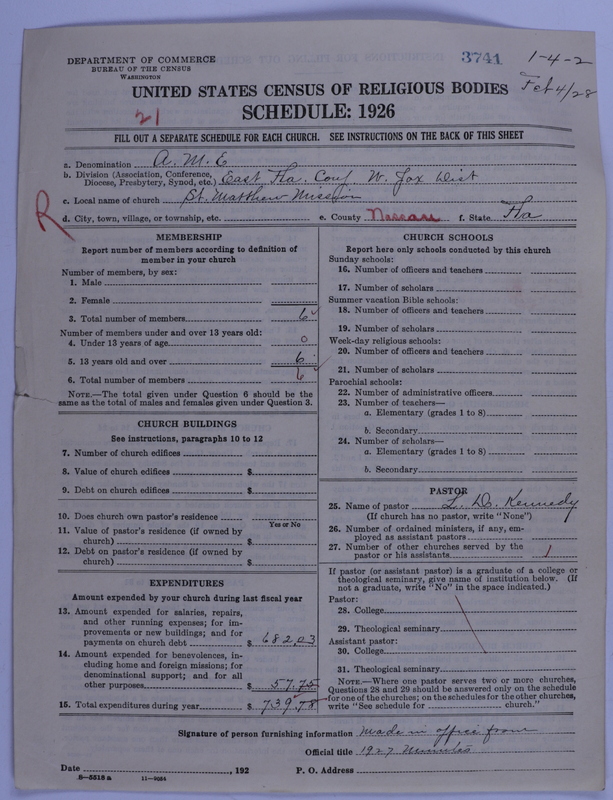 DEPARTMENT OF COMMERCE
BUREAU OF THE CENSUS
WASHINGTON
3741
1-4-2
Feb 4/28
UNITED STATES CENSUS OF RELIGIOUS BODIES
21
SCHEDULE: 1926
FILL OUT A SEPARATE SCHEDULE FOR EACH CHURCH. SEE INSTRUCTIONS ON THE BACK OF THIS SHEET
a. Denomination A. M. E
b. Division (Association, Conference, Diocese, Presbytery, Synod, etc.) East Fla. Conf W. Jax Dist
c. Local name of church St. Matthew Mission
R
d. City, town, village, or township, etc. e. County Nassau f. State Fla
MEMBERSHIP
Report number of members according to definition of
member in your church
Number of members, by sex:
1. Male
2. Female
3. Total number of members 6
Number of members under and over 13 years old:
4. Under 13 years of age 0
5. 13 years old and over 6
6. Total number of members 6
NOTE.—The total given under Question 6 should be the
same as the total of males and females given under Question 3.
CHURCH BUILDINGS
See instructions, paragraphs 10 to 12
7. Number of church edifices
8. Value of church edifices $
9. Debt on church edifices $
10. Does church own pastor's residence
Yes or No
11. Value of pastor's residence (if owned by
church) $
12. Debt on pastor's residence (if owned by
church) $
EXPENDITURES
Amount expended by your church during last fiscal year
13. Amount expended for salaries, repairs,
and other running expenses; for im-
provements or new buildings; and for
payments on church debt $ 682.03
14. Amount expended for benevolences, in-
cluding home and foreign missions; for
denominational support; and for all
other purposes $ 57.75
15. Total expenditures during year $ 739.78
CHURCH SCHOOLS
Report here only schools conducted by this church
Sunday schools:
16. Number of officers and teachers
17. Number of scholars
Summer vacation Bible schools:
18. Number of officers and teachers
19. Number of scholars
Week-day religious schools:
20. Number of officers and teachers
21. Number of scholars
Parochial schools:
22. Number of administrative officers
23. Number of teachers—
a. Elementary (grades 1 to 8)
b. Secondary
24. Number of scholars—
a. Elementary (grades 1 to 8)
b. Secondary
PASTOR
25. Name of pastor L. D. Kennedy
(If church has no pastor, write "None")
26. Number of ordained ministers, if any, em-
ployed as assistant pastors
27. Number of other churches served by the
pastor or his assistants 1
If pastor (or assistant pastor) is a graduate of a college or
theological seminary, give name of institution below. (If
not a graduate, write "No" in the space indicated.)
Pastor:
28. College
29. Theological seminary
Assistant pastor:
30. College
31. Theological seminary
NOTE.—Where one pastor serves two or more churches,
Questions 28 and 29 should be answered only on the schedule
for one of the churches; on the schedules for the other churches,
write "See schedule for church."
Signature of person furnishing information Made in office from
Official title 1927 Minutes
Date , 192 P. O. Address
8-5516a 11-9034